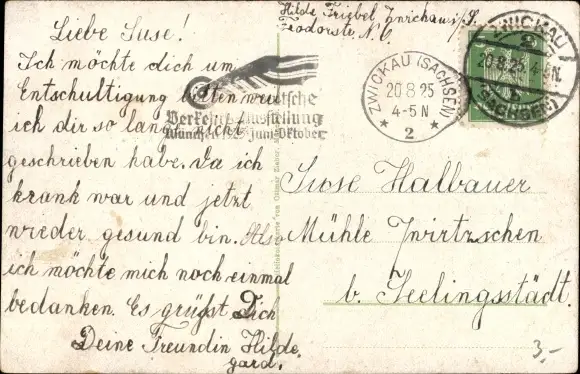 Hilde Friebel, Zwickau i/S.
Teodorstr. N.
Liebe Suse!
Ich möchte dich um
Entschultigung bitten weil
ich dir so lang nicht
geschrieben habe. Da ich
krank war und jetzt
wieder gesund bin. Also
ich möchte mich noch einmal
bedanken. Es grüsst Dich
Deine Freundin Hilde
gard.
Deutsche
Verkehrsausstellung
München 1925 Juni-Oktober
ZWICKAU (SACHSEN)
20 8 25
4-5 N
* 2 *
ZWICKAU
2
20.8.25. 4-5N.
(SACHSEN)
Suse Halbauer
Mühle Zwirtzschen
b. Seelingsstädt.
3,-